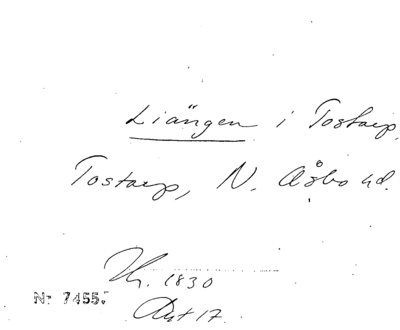 Liängen i Tostarp,
Tostarp, N. Åsbo hd.
Hr. 1830
Akt 17.
Nr 7455.